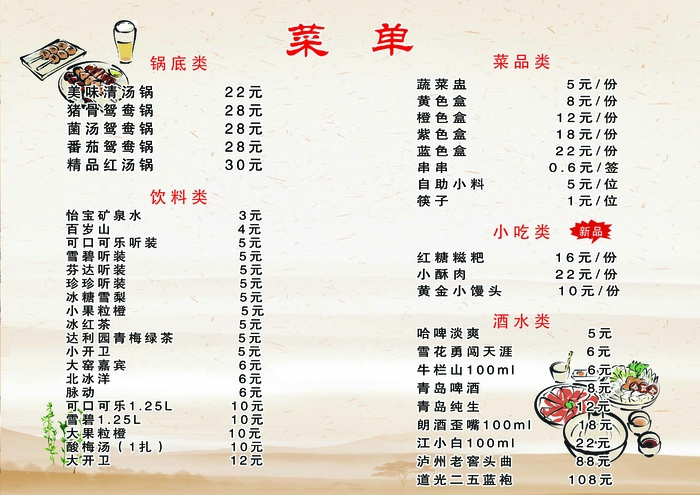 菜 单
锅底类
美味清汤锅 22元
猪骨鸳鸯锅 28元
菌汤鸳鸯锅 28元
番茄鸳鸯锅 28元
精品红汤锅 30元
饮料类
怡宝矿泉水 3元
百岁山 4元
可口可乐听装 5元
雪碧听装 5元
芬达听装 5元
珍珍听装 5元
冰糖雪梨 5元
小果粒橙 5元
冰红茶 5元
达利园青梅绿茶 5元
小开卫 5元
大窑嘉宾 6元
北冰洋 6元
脉动 6元
可口可乐1.25L 10元
雪碧1.25L 10元
大果粒橙 10元
酸梅汤（1扎） 10元
大开卫 12元
菜品类
蔬菜盅 5元/份
黄色盒 8元/份
橙色盒 12元/份
紫色盒 18元/份
蓝色盒 22元/份
串串 0.6元/签
自助小料 5元/位
筷子 1元/位
小吃类 新品
红糖糍粑 16元/份
小酥肉 22元/份
黄金小馒头 10元/份
酒水类
哈啤淡爽 5元
雪花勇闯天涯 6元
牛栏山100ml 6元
青岛啤酒 8元
青岛纯生 12元
朗酒歪嘴100ml 18元
江小白100ml 22元
泸州老窖头曲 88元
道光二五蓝袍 108元